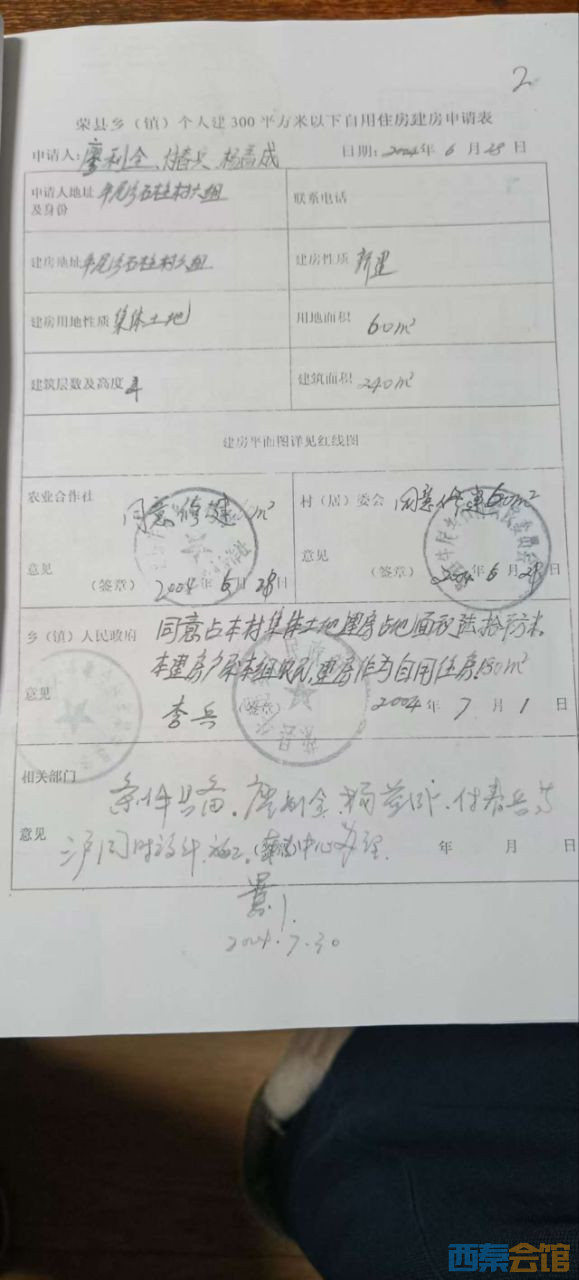 2
荣县乡（镇）个人建300平方米以下自用住房建房申请表
申请人：廖利全、付春兵、杨益成 日期：2004年6月28日
申请人地址及身份 石柱村六组 联系电话
建房地址 石柱村六组 建房性质 新建
建房用地性质 集体土地 用地面积 60m²
建筑层数及高度 4 建筑面积 240m²
建房平面图详见红线图
农业合作社 同意修建 m² 村（居）委会 同意修建60m²
意见 （签章） 2004年6月28日 意见 （签章） 2004年6月28日
乡（镇）人民政府 同意占本村集体土地建房占地面积陆拾平方米。
本建房户 建房作为自用住房
意见 李兵 （签章） 2004年7月1日
相关部门 条件具备。廖利全、付春兵
意见 同时设计、施工。中心办理. 年 月 日
2004.7.30
西秦会馆